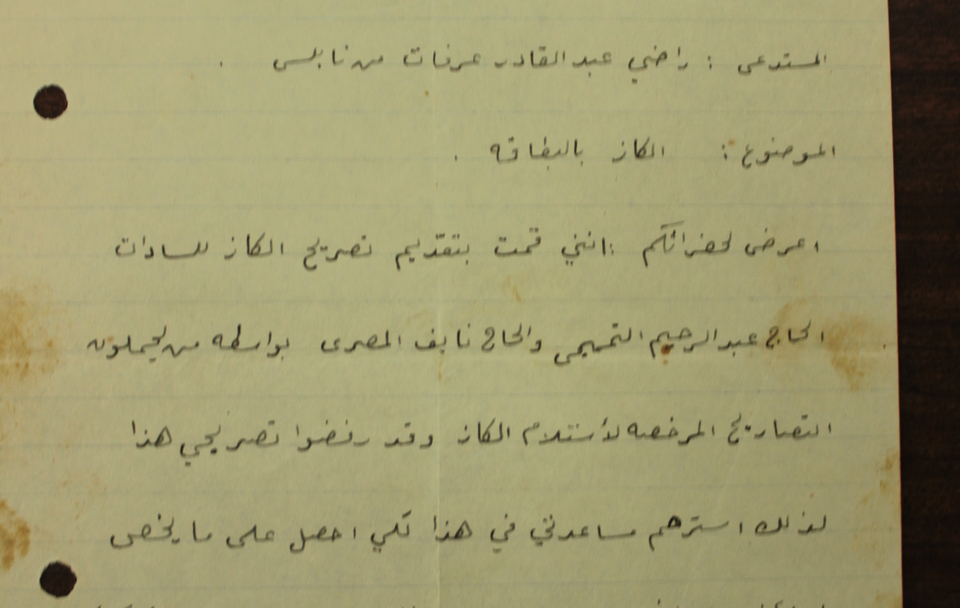 المستدعى : راضي عبد القادر عرفات من نابلس .
الموضوع : الكاز بالبطاقه .
اعرض لحضراتكم : انني قمت بتقديم تصريح الكاز للسادات
الحاج عبد الرحيم التميمي والحاج نايف المصرى بواسطه من يحملون
التصاريح المرخصه لأستلام الكاز وقد رفضوا تصريحي هذا
لذلك استرحم مساعدتي في هذا لكي احصل على ما يخص